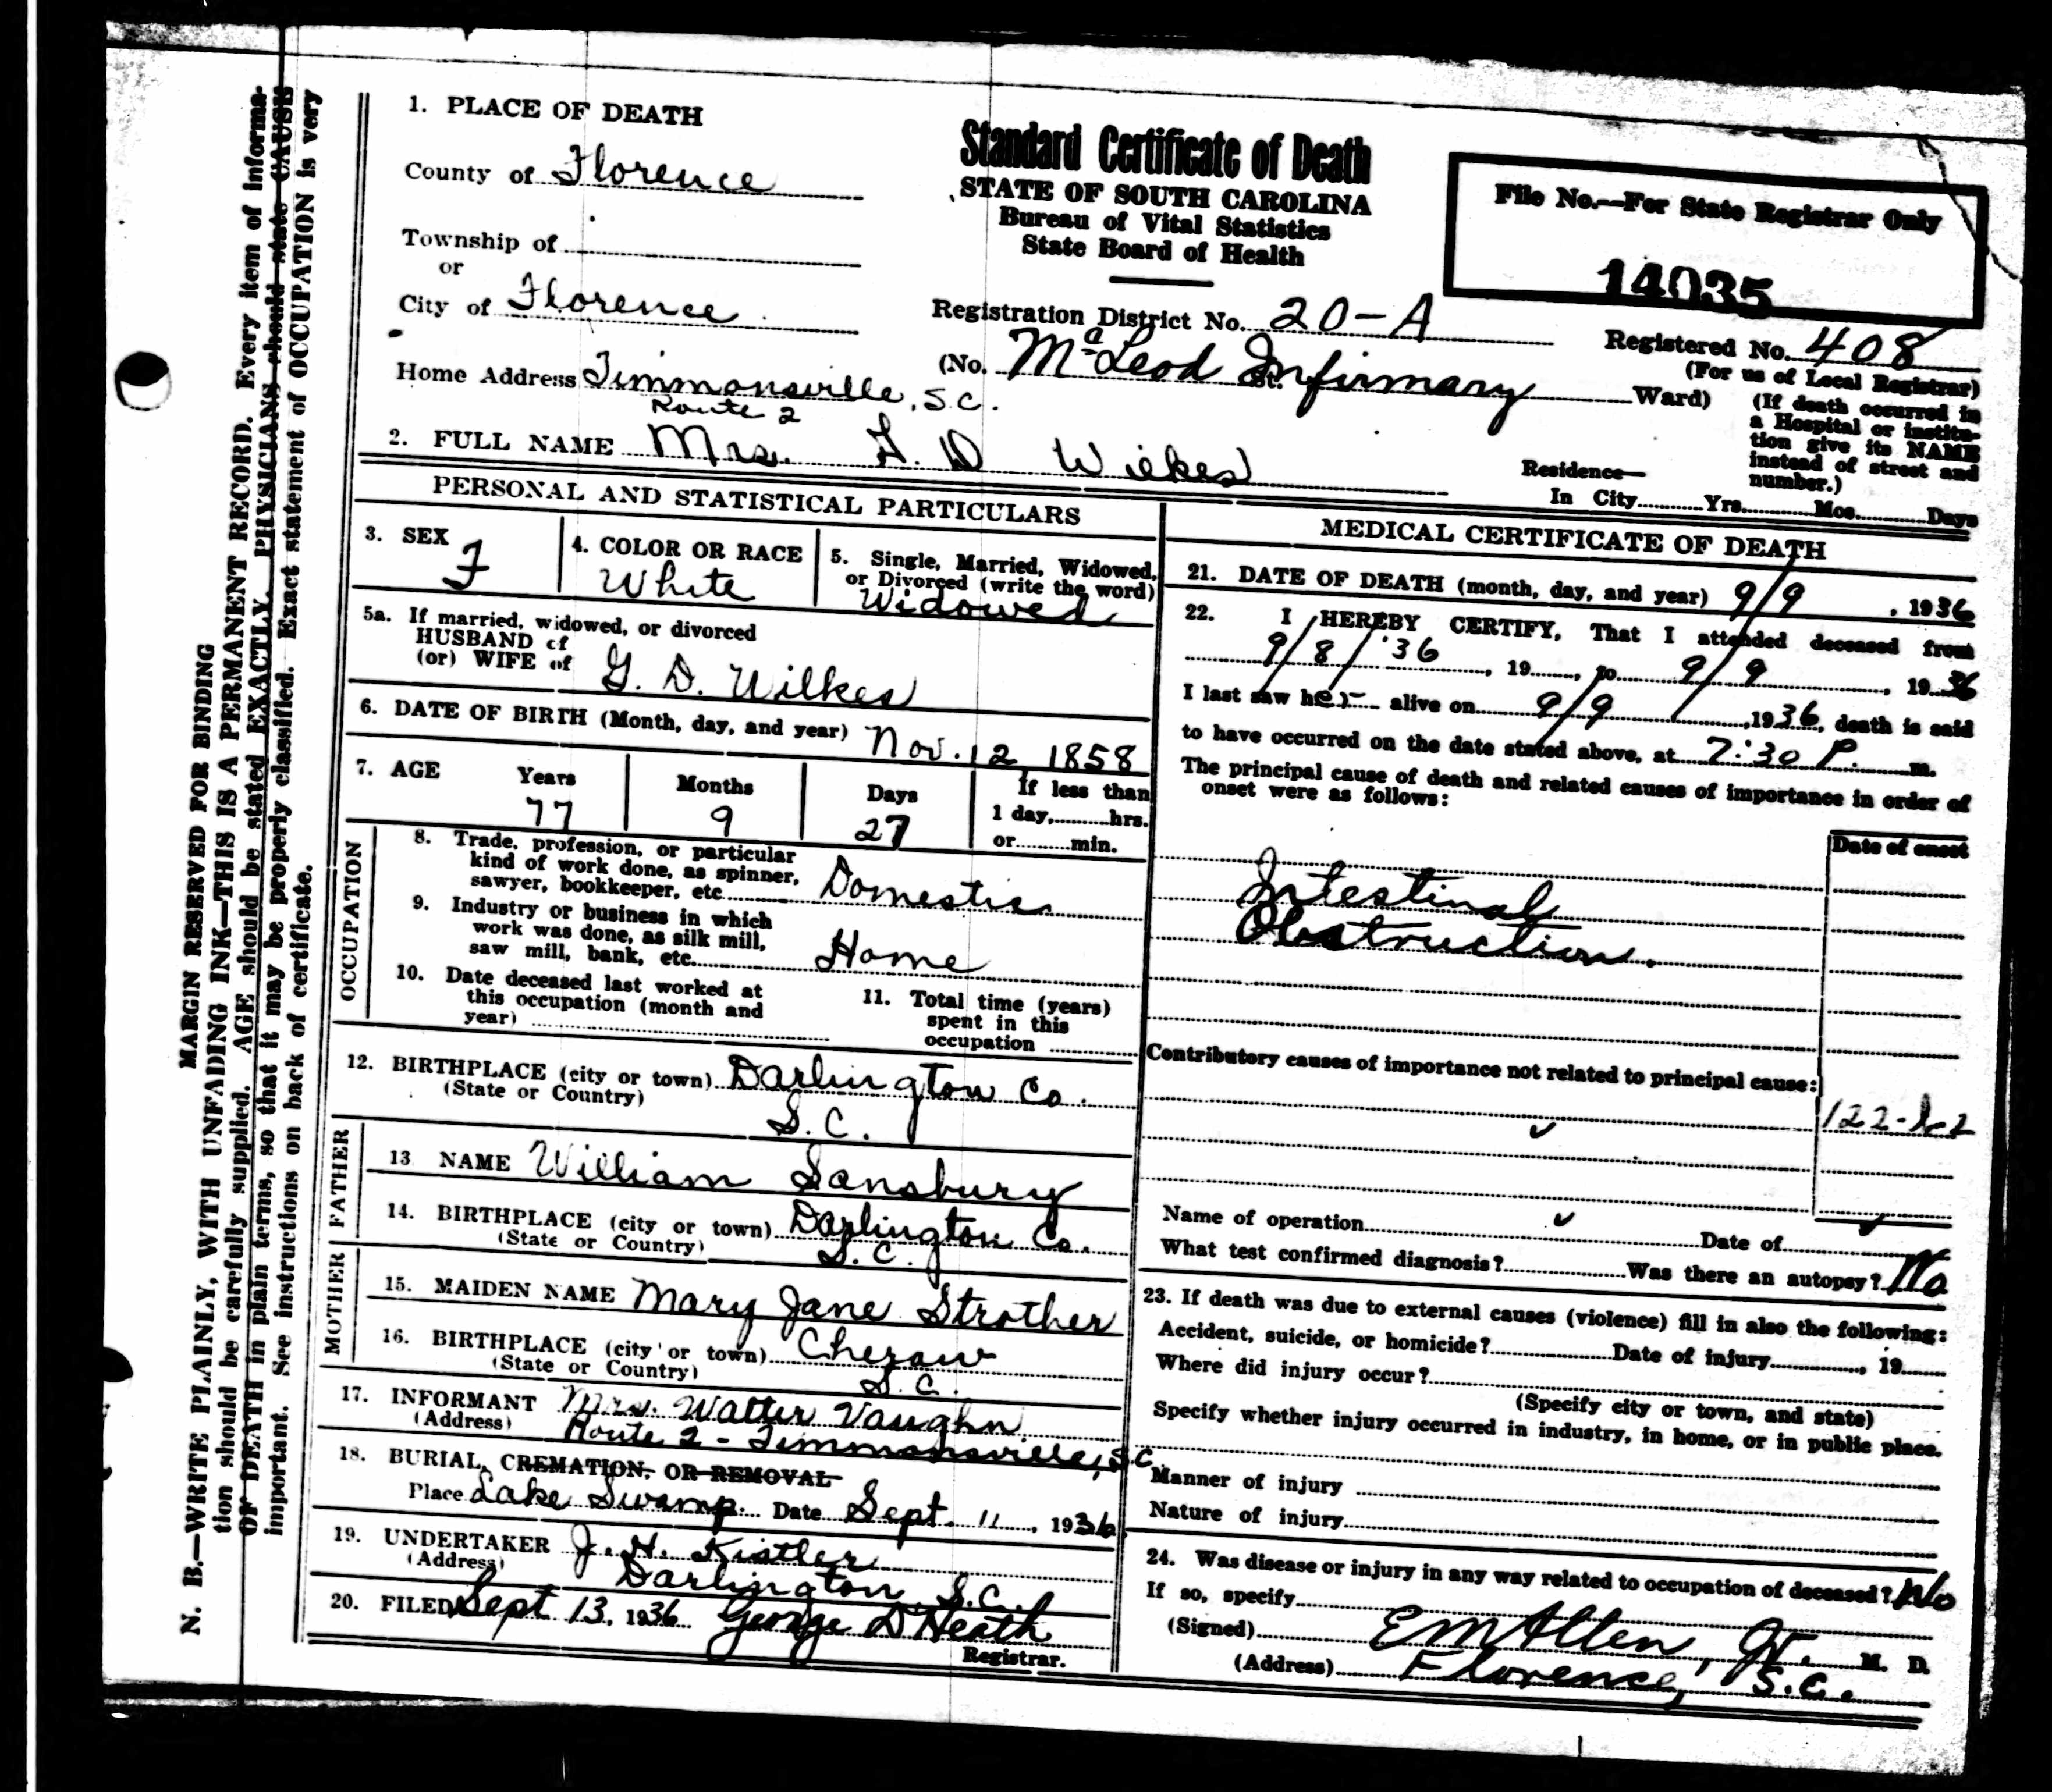 MARGIN RESERVED FOR BINDING
N. B.—WRITE PLAINLY, WITH UNFADING INK—THIS IS A PERMANENT RECORD. Every item of informa-
tion should be carefully supplied. AGE should be stated EXACTLY. PHYSICIANS should state CAUSE
OF DEATH in plain terms, so that it may be properly classified. Exact statement of OCCUPATION is very
important. See instructions on back of certificate.
1. PLACE OF DEATH
County of Florence
Township of
or
City of Florence
Home Address Timmonsville, S.C.
Route 2
Standard Certificate of Death
STATE OF SOUTH CAROLINA
Bureau of Vital Statistics
State Board of Health
File No.—For State Registrar Only
14035
Registration District No. 20-A
Registered No. 408
(For us of Local Registrar)
(No. McLeod Infirmary St. Ward)
(If death occurred in
a Hospital or institu-
tion give its NAME
instead of street and
number.)
2. FULL NAME Mrs. G. D Wilkes
Residence—
In City Yrs. Mos. Days
PERSONAL AND STATISTICAL PARTICULARS
3. SEX F
4. COLOR OR RACE
White
5. Single, Married, Widowed,
or Divorced (write the word)
Widowed
5a. If married, widowed, or divorced
HUSBAND of
(or) WIFE of G. D. Wilkes
6. DATE OF BIRTH (Month, day, and year) Nov. 12 1858
7. AGE Years Months Days If less than
77 9 27 1 day, hrs.
or min.
OCCUPATION
8. Trade, profession, or particular
kind of work done, as spinner,
sawyer, bookkeeper, etc. Domestic
9. Industry or business in which
work was done, as silk mill,
saw mill, bank, etc. Home
10. Date deceased last worked at
this occupation (month and
year)
11. Total time (years)
spent in this
occupation
12. BIRTHPLACE (city or town) Darlington Co.
(State or Country) S.C.
FATHER
13 NAME William Sansbury
14. BIRTHPLACE (city or town) Darlington Co.
(State or Country) S.C.
MOTHER
15. MAIDEN NAME Mary Jane Strother
16. BIRTHPLACE (city or town) Cheraw
(State or Country) S.C.
17. INFORMANT Mrs. Walter Vaughn
(Address) Route 2 - Timmonsville, S.C.
18. BURIAL, CREMATION, OR REMOVAL
Place Lake Swamp. Date Sept. 11, 1936
19. UNDERTAKER J. H. Kistler
(Address) Darlington, S.C.
20. FILED Sept 13, 1936 George D Heath
Registrar.
MEDICAL CERTIFICATE OF DEATH
21. DATE OF DEATH (month, day, and year) 9/9, 1936
22. I HEREBY CERTIFY, That I attended deceased from
9/8/'36, 19, to 9/9, 1936
I last saw her alive on 9/9, 1936, death is said
to have occurred on the date stated above, at 7:30 P. m.
The principal cause of death and related causes of importance in order of
onset were as follows:
Date of onset
Intestinal
Obstruction.
Contributory causes of importance not related to principal cause:
Name of operation Date of
What test confirmed diagnosis? Was there an autopsy? No
23. If death was due to external causes (violence) fill in also the following:
Accident, suicide, or homicide? Date of injury, 19
Where did injury occur?
(Specify city or town, and state)
Specify whether injury occurred in industry, in home, or in public place.
Manner of injury
Nature of injury
24. Was disease or injury in any way related to occupation of deceased? No
If so, specify
(Signed) E M Allen, Jr. M. D.
(Address) Florence, S.C.